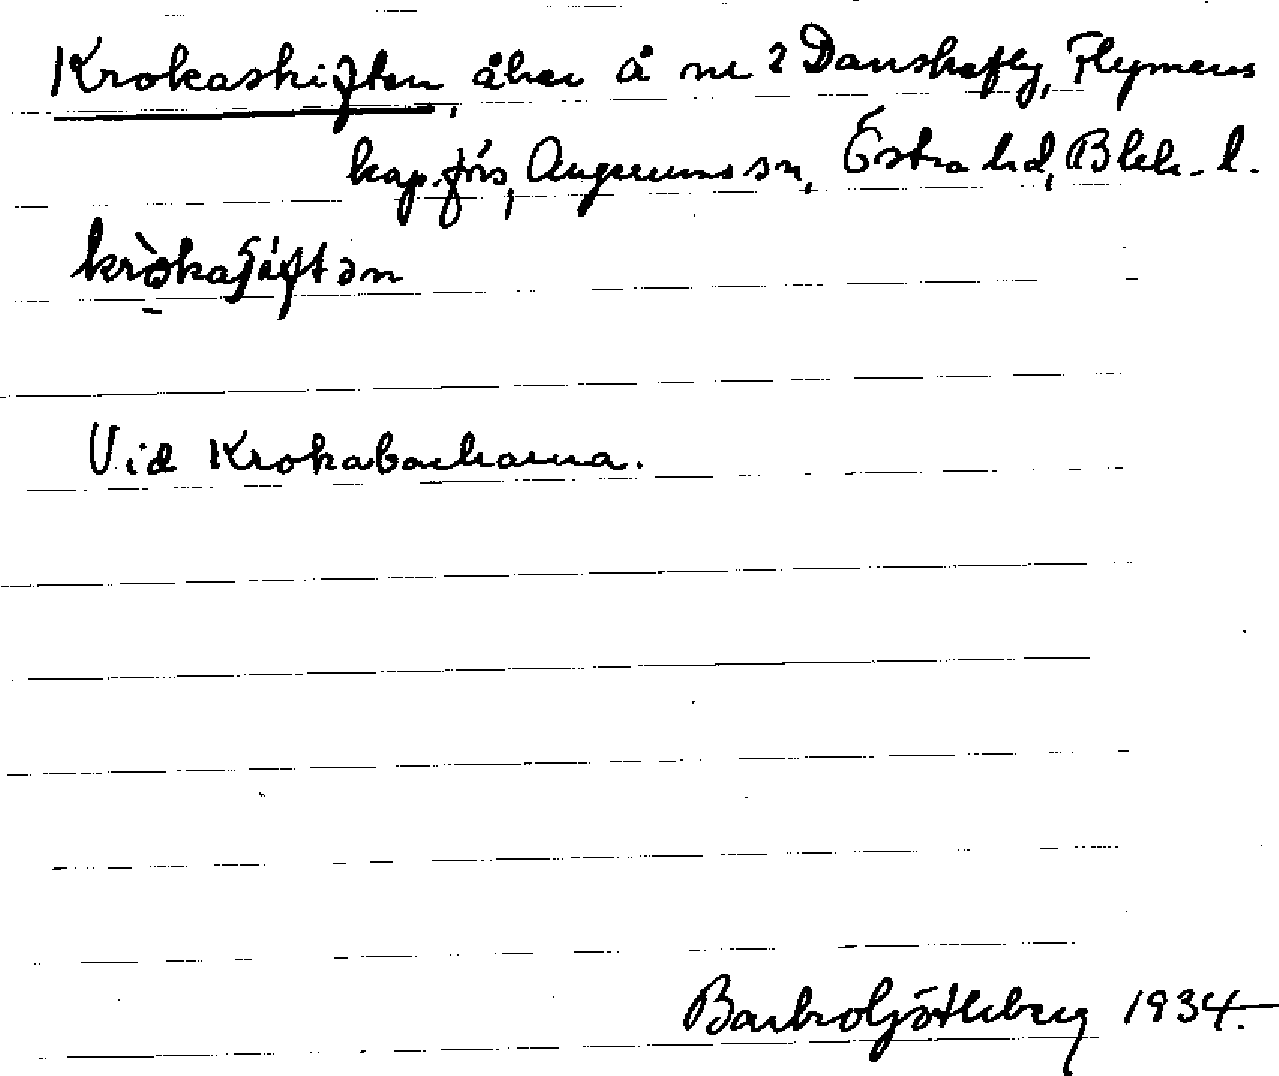 Krokaskiften, åker å nr 2 Danskefly, Flymens
kap.förs, Augerums sn, Östra hd, Blek. l.
kròkaʃiftən
Vid Krokabackarna.
Barbro Götleberg 1934.